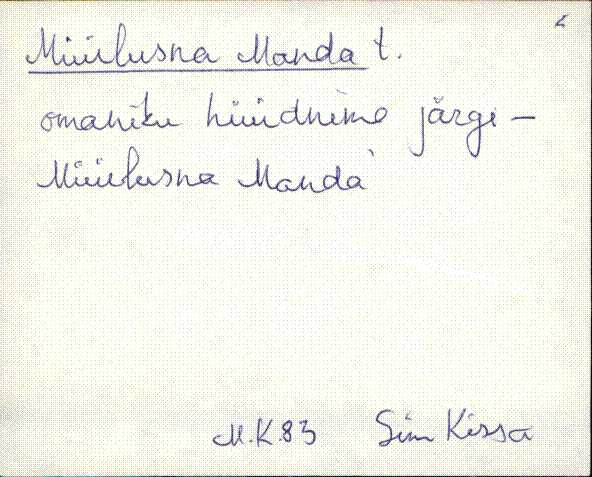 Müürlusna Manda t.
omaniku hüüdnime järgi –
Müürlusna Manda
M.K.83 Sim Kissa